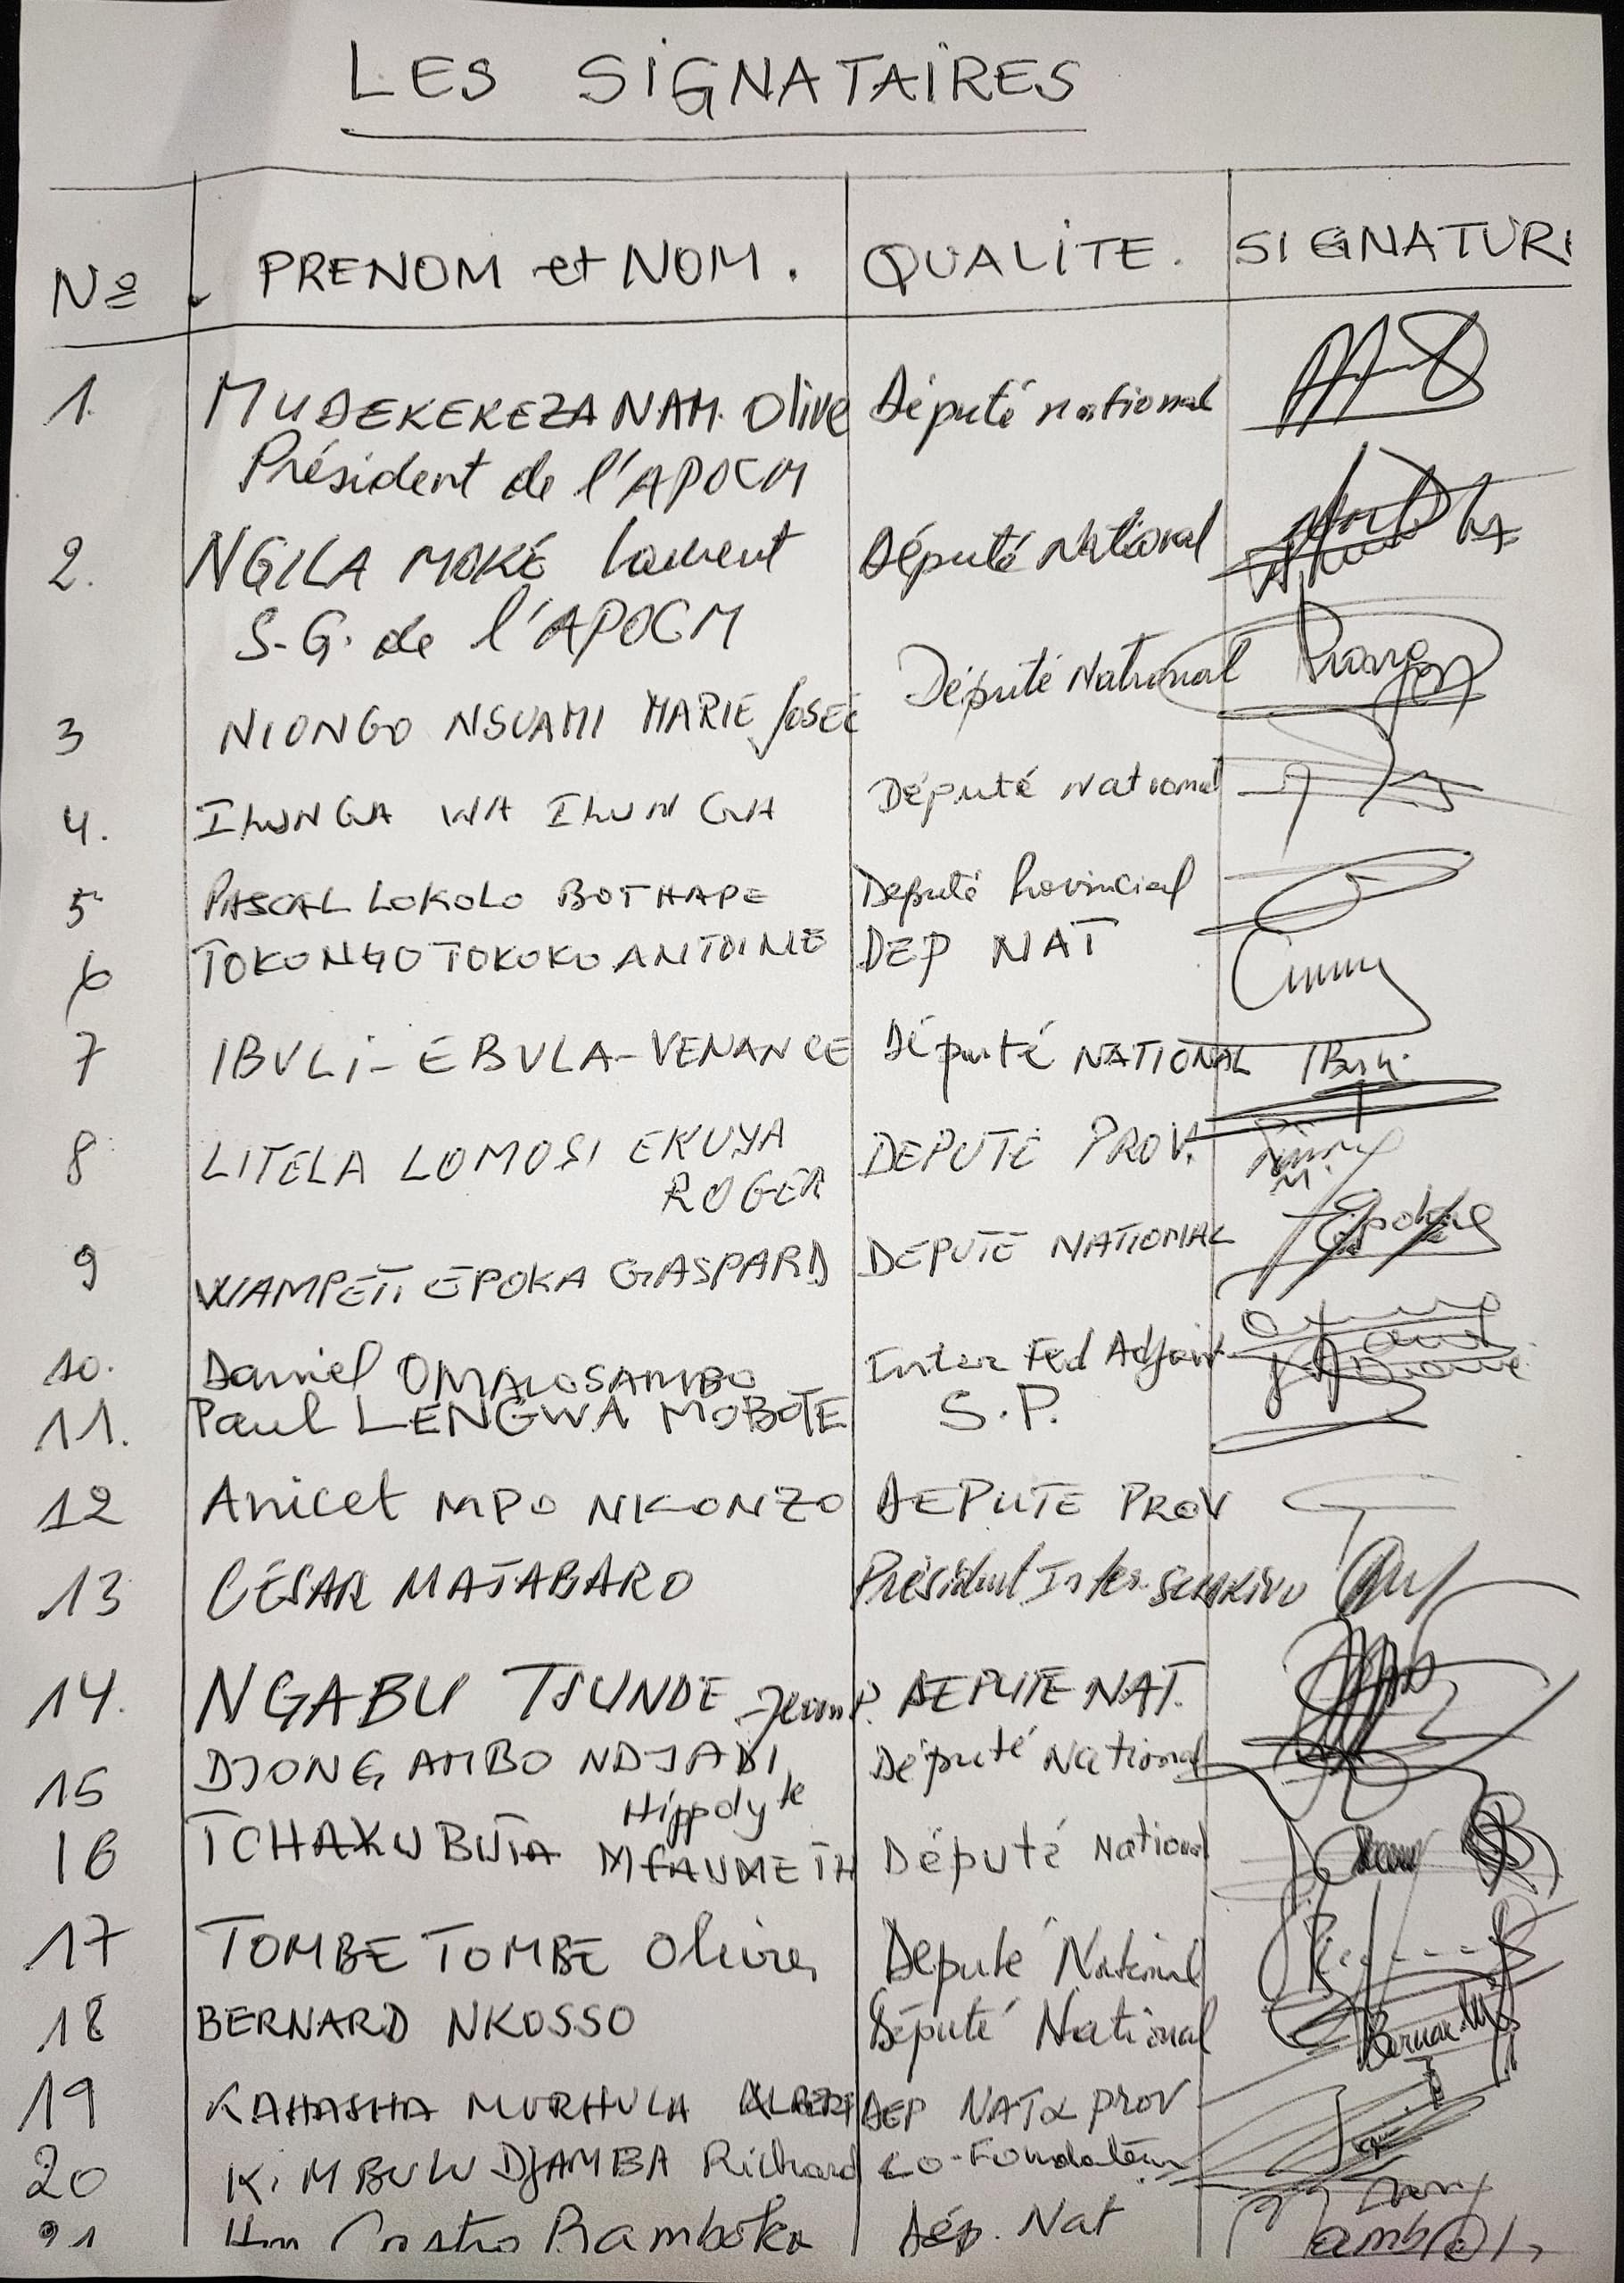 LES SIGNATAIRES
Nº PRENOM et NOM. QUALITE. SIGNATURE
1. MUDEKEREZA NAM. Olive Député national
Président de l'APOCM
2. NGILA MOKE Laurent Député National
S.G. de l'APOCM
3 NIONGO NSUAMI MARIE José Député National
4. ILUNGA WA ILUNGA Député National
5 PASCAL LOKOLO BOTHAPE Deputé Provincial
6 TOKONGO TOKOKO ANTOINE DEP NAT
7 IBULI-EBULA-VENANCE Député NATIONAL IBuli
8 LITELA LOMOSI EKUYA DEPUTE PROV.
ROGER
9 WAMPETI EPOKA GASPARD DEPUTE NATIONAL
10. Daniel OMALOSAMBO Inter Fed Adjoint
11. Paul LENGWA MOBOTE S.P.
12 Anicet MPO NKONZO DEPUTE PROV
13 CÉSAR MATABARO Président Inter-SUDKIVU
14. NGABU TSUNDE Jean P. DEPUTE NAT.
15 DJONG AMBO NDJADI Député National
Hippolyte
16 TCHAKUBUTA Député National
17 TOMBE TOMBE Olivier Deputé National
18 BERNARD NKOSSO Député National
19 KAHASHA MURHULA ALBERT DEP NAT & PROV
20 KIMBULU DJAMBA Richard Co-Fondateur
21 Hon Castro Ramboka Dép. Nat